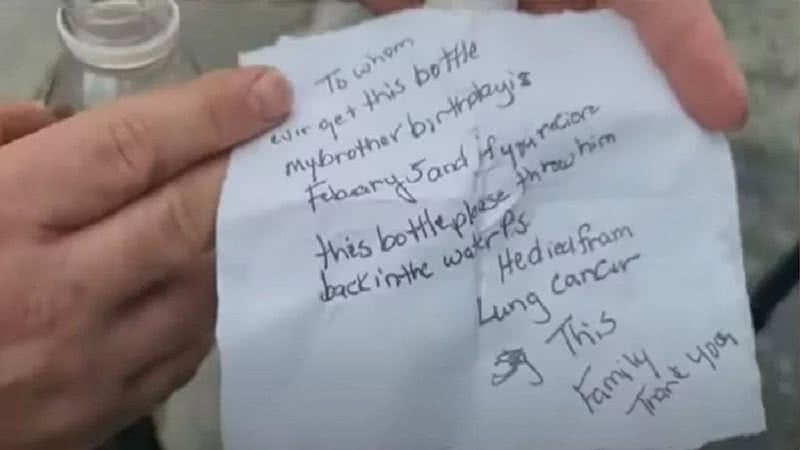 To whom
ever get this bottle
my brother birthday is
Febuary 5 and if you recore
this bottle please throw him
back in the water Ps
He died fram
Lung cancer
This
Family
Thank you